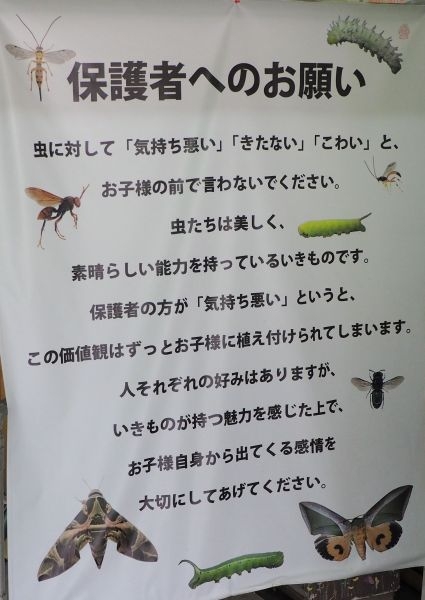 保護者へのお願い
虫に対して「気持ち悪い」「きたない」「こわい」と、
お子様の前で言わないでください。
虫たちは美しく、
素晴らしい能力を持っているいきものです。
保護者の方が「気持ち悪い」というと、
この価値観はずっとお子様に植え付けられてしまいます。
人それぞれの好みはありますが、
いきものが持つ魅力を感じた上で、
お子様自身から出てくる感情を
大切にしてあげてください。